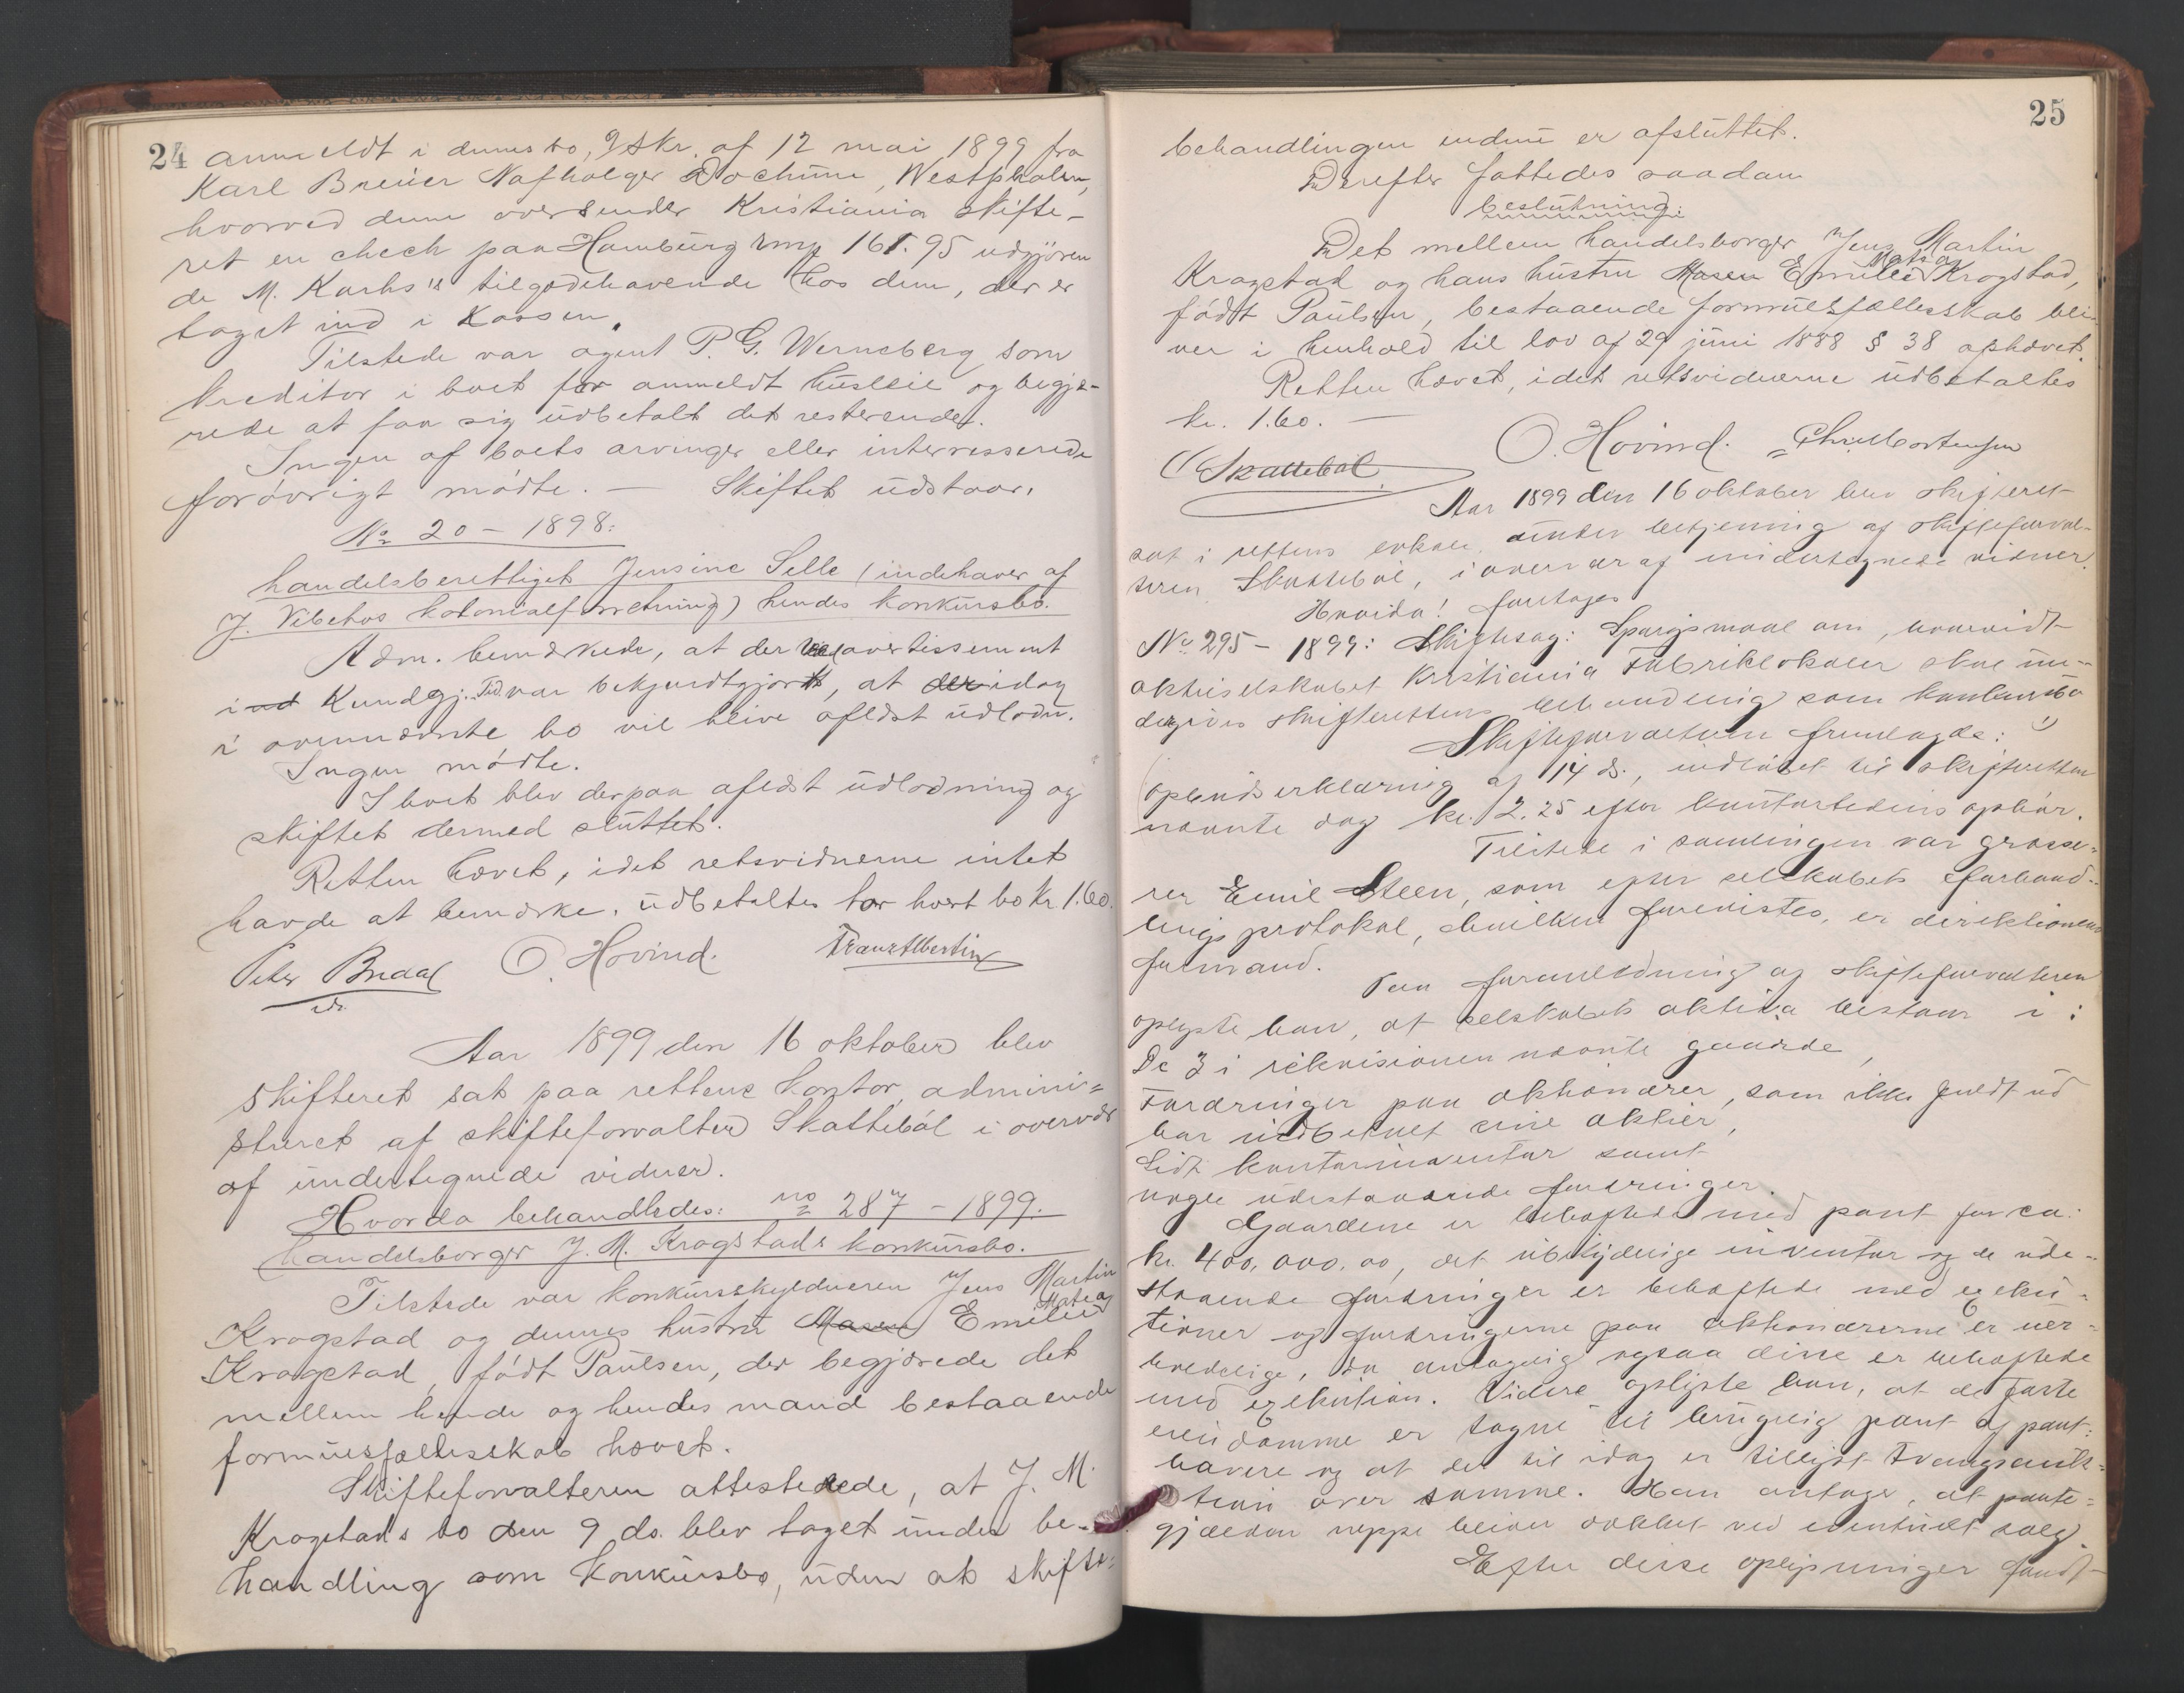 24
anmeldt i dennes bo, 2 skr. af 12 mai 1899 fra
Karl Breuer Nafholger Bochum, Westphalen,
hvorved denne oversender Kristiania skifte-
ret en check paa Hamburg 161.95 udgjören
de M. Kurhs's tilgodehavende hos dem, der er
taget ind i kassen.
Tilstede var agent P. G. Werneberg som
kreditor i boet for anmeldt husleie og begjæ-
rede at faa sig udbetalt det resterende.
Ingen af boets arvinger eller interesserede
forövrigt mödte. — Skiftet udstaar.
No 20 - 1898:
handelsberettiget Jensine Selle (indehaver af
J. Vibehos kolonialforretning) hendes konkursbo.
Adm. bemærkede, at der ved avertissement
ind Kundgj. Tid. var bekjendtgjort, at der idag
i ovennævnte bo vil blive aflæst udlodn.
Ingen mödte.
I boet blev derpaa aflæst udlodning og
skiftet dermed sluttet.
Retten hævet, idet retsvidnerne intet
havde at bemærke. udbetaltes for hvert bo kr 1.60.
Peter Bredal O. Hovind. Franz Albertin
Aar 1899 den 16 oktober blev
skifteret sat paa rettens kontor, admini=
streret af skifteforvalter Skatteböl i overvær
af undertegnede vidner.
Hvorda behandledes: no 287 - 1899.
handelsborger J. M. Krogstads konkursbo.
Tilstede var konkursskyldneren Jens Martin
Krogstad og dennes hustru Maren Emilie Matea
Krogstad, födt Paulsen, der begjærede det
mellem hende og hendes mand bestaaende
formuesfællesskab hævet.
Skifteforvalteren attesterede, at J. M.
Krogstads bo den 9 ds. blev taget under be-
handling som konkursbo, uden at skifte=
25
behandlingen endnu er afsluttet.
Derefter fattedes saadan
beslutning:
Det mellem handelsborger Jens Martin
Krogstad og hans hustru Maren Emilie Matea Krogstad,
födt Paulsen, bestaaende formuesfællesskab bli-
ver i henhold til lov af 29 juni 1888 § 38 ophævet.
Retten hævet, idet retsvidnerne udbetaltes
kr. 1.60. —
Skattebøl O. Hovind. Chr. Mortensen
Aar 1899 den 16 oktober blev skifteret
sat i rettens lokale under betjening af skifteforval-
teren Skattebøl, i overvær af undertegnede vidner.
Hvorda! foretages
No 295 - 1899: Skiftesag: Spørgsmaal om, hvorvidt
aktieselskabet Kristiania Fabriklokaler skal un-
dergives skifterettens behandling som konkursbo
Skifteforvalteren fremlagde:
opbudserklæring af 14 ds., indløbet til skifteretten
nævnte dag kr. 2.25 efter kontortidens ophør.
Tilstede i samlingen var grosse=
rer Emil Steen, som efter selskabets forhand-
lingsprotokol, hvilken forevistes, er direktionens
formand.
Paa foranledning af skifteforvalteren
oplyste han, at selskabets aktiva bestaar i:
De 3 i rekvisionen nævnte gaarde,
Fordringer paa aktionærer, som ikke fuldt ud
har indbetalt sine aktier,
Lidt kontorinventar samt
nogle udestaaende fordringer.
Gaardene er behæftede med pant for ca.
kr. 400,000.00, det ubetydelige inventar og de ude-
staaende fordringer er behæftede med exeku-
tioner og fordringerne paa aktionærerne er uer-
holdelige, da antagelig ogsaa disse er behæftede
med exekution. Videre oplyste han, at de faste
eiendomme er tagne til brugelig pant af pant-
havere og at der til idag er tillyst tvangsauk-
tion over samme. Han antager, at pante=
gjælden neppe bliver dækket ved eventuelt salg.
Efter disse oplysninger fandt